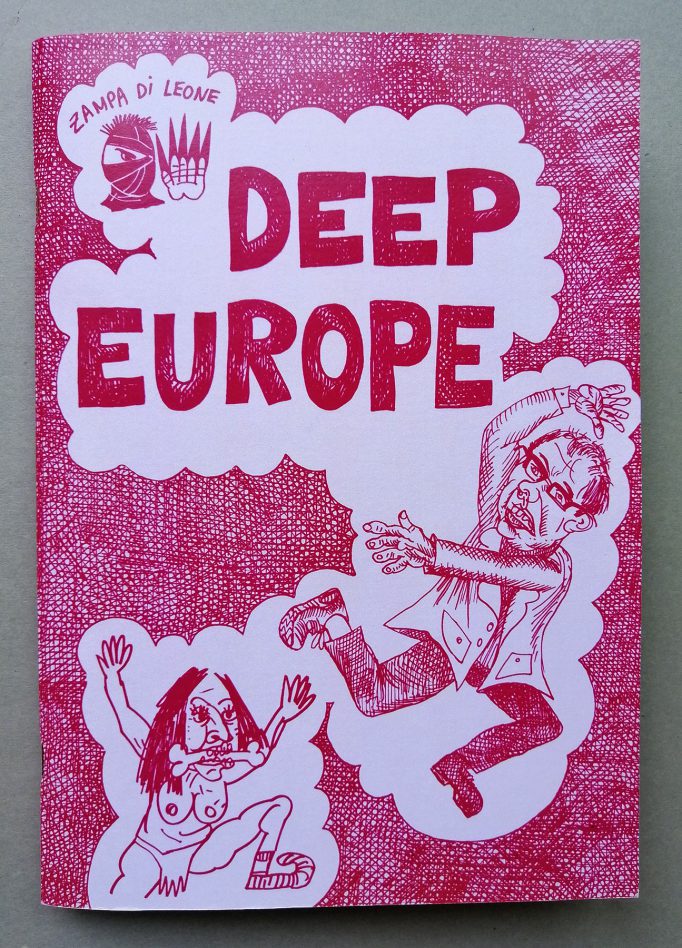 ZAMPA Di LEONE
DEEP
EUROPE